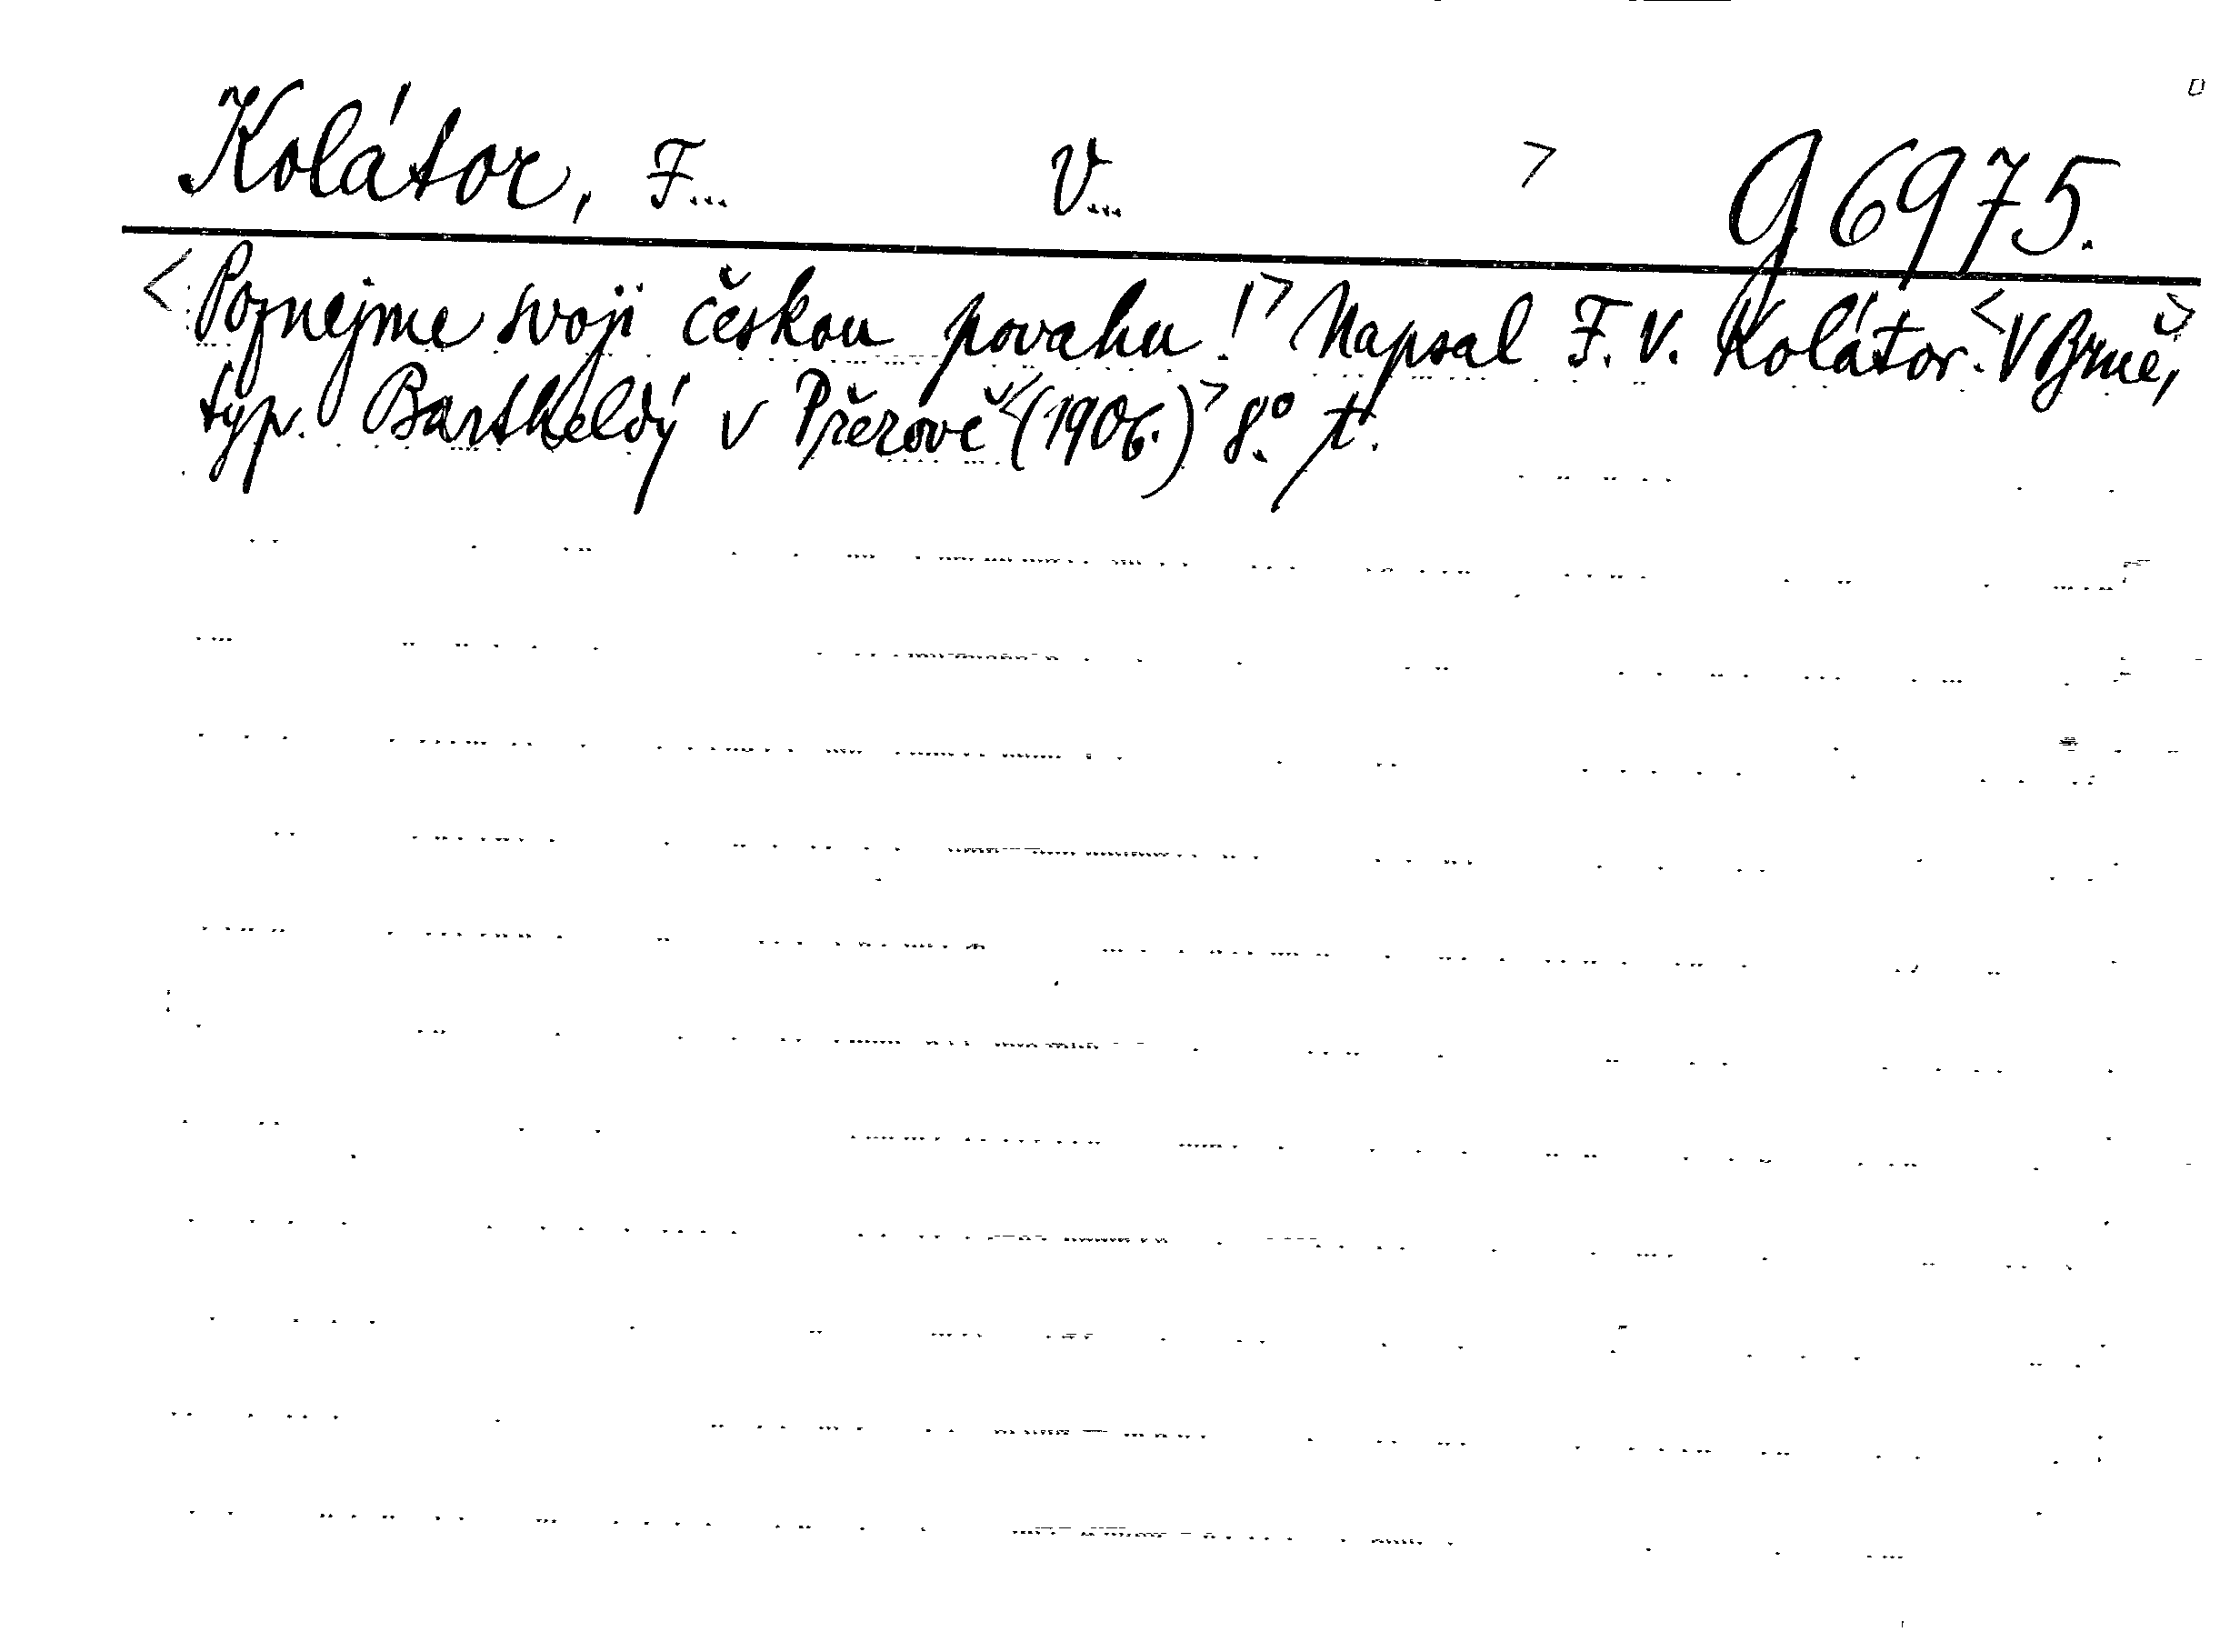 Kolátor, F... V... > g 6975.
<Poznejme svoji českou povahu!> Napsal F. V. Kolátor. <V Brně,>
typ. Bartheldý v Přerově <(1906.)> 8.° t.